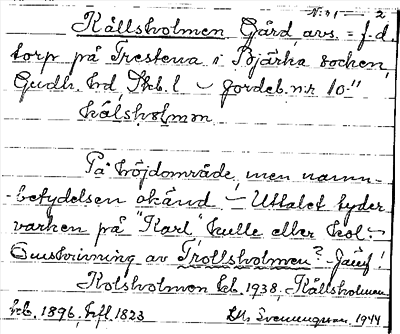 Källsholmen Gård, avs. = f.d.
torp på Trestena i Bjärka socken,
Gudh. hrd Skb. l – Jordeb. nr 10."
kälshsolmon
På höjdområde, men namn-
-betydelsen okänd – Uttalet tyder
varken på "Karl" kulle eller kol. –
Omskrivning av Trollsholmen? – Jämf!
Kolsholmen hfb. 1938, Källsholmen
hfb. 1896, hfl. 1823
1944